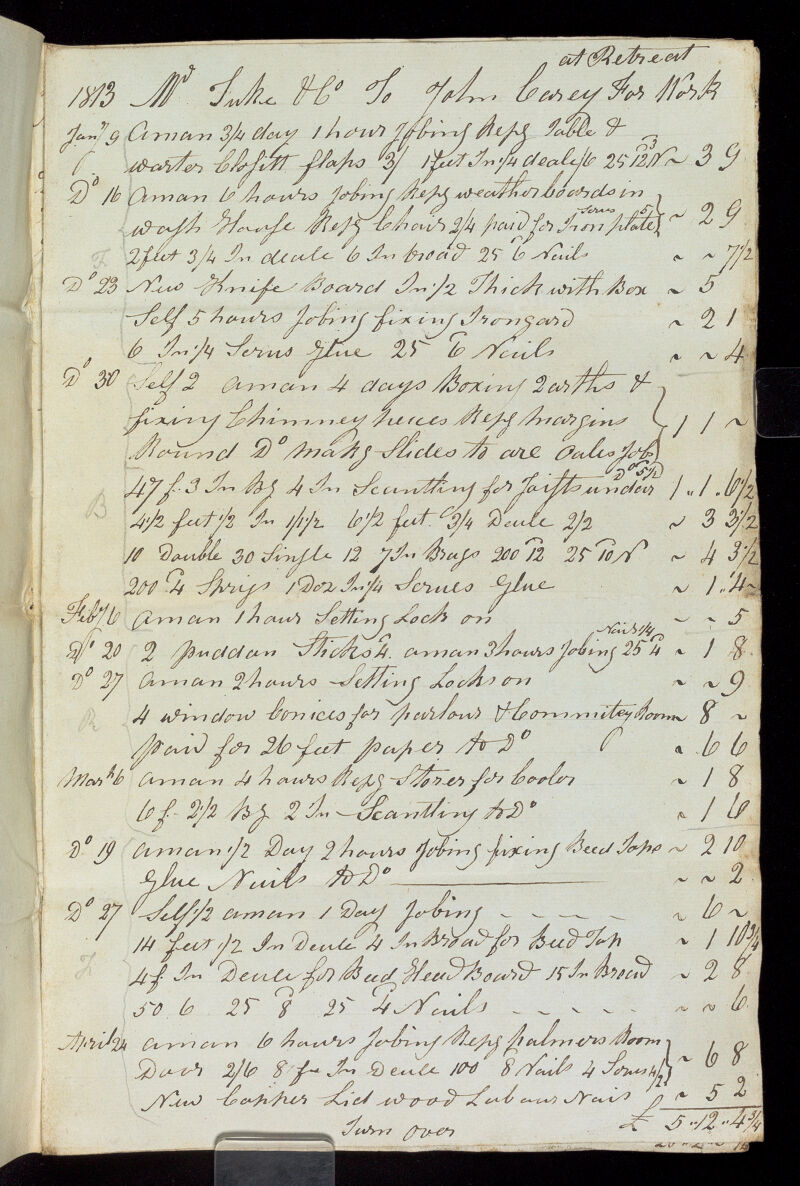 at Retreat
1813 Mr Tuke & Co To John Carey For Work
Jany 9 aman 3/4 day 1 hour Jobing Repg Table &
warter Clositt flaps 3/ 1 feet In 1/4 deale /6 25 12 N ~ 3 9
Do 16 aman 6 hours Jobing Repg weatherboards in
wash House Repg Chair 2/4 paid for Iron plate ~ 2 9
Scrus /5
2 feet 3/4 In deale 6 In broad 25 6 Nails ~ ~ 7 1/2
Do 23 New Knife Board In 1/2 Thick with Box ~ 5
Self 5 hours Jobing fixing Irongard ~ 2 1
6 In 1/4 Scrus Glue 25 6 Nails ~ ~ 4
Do 30 Self 2 aman 4 days Boxing 2 arths &
fixing Chimney peices Repg margins 1 1 ~
Round Do makg Slides to are Jobs
47 f 3 In By 4 In Scantling for Joists undar 1 " 1 " 6 1/2
4 1/2 feet 1/2 In 1/1 1/2 6 1/2 feet 3/4 Deale 2/2 ~ 3 3 1/2
10 Double 30 Single 12 7 In Brags 200 12 25 10 N ~ 4 3 1/2
200 4 Sprigs 1 Doz In 1/4 Scrues Glue ~ 1 " 4 ~
Feby 6 aman 1 hour Setting Lock on ~ ~ 5
Nails 1/4
Do 20 2 puddan Sticks 4 aman 3 hours Jobing 25 4 ~ 1 8
Do 27 aman 2 hours Setting Locks on ~ ~ 9
4 window Conices for parlour & Commitey Room ~ 8 ~
paid for 26 feet paper to Do ~ 6 6
Marh 6 aman 4 hours Repg Storer for Coolor ~ 1 8
6 f 2 1/2 By 2 In Scantling to Do ~ 1 6
Do 19 aman 1/2 Day 2 hours Jobing fixing Beed Tops ~ 2 10
Glue Nails to Do ~ ~ 2
Do 27 Self 1/2 aman 1 Day Jobing ~ 6 ~
14 feet 1/2 In Deale 4 In Broad for Beed Top ~ 1 10 3/4
4 f In Deale for Beed Head Board 15 In Broad ~ 2 8
50 6 25 8 25 4 Nails ~ ~ 6
April 24 aman 6 hours Jobing Repg palmers Room
Door 2/6 8 f In Deale 100 8 Nails 4 Scrus ~ 6 8
New Copper Lid wood Labour Nails ~ 5 2
Turn over £ 5 " 12 " 4 3/4